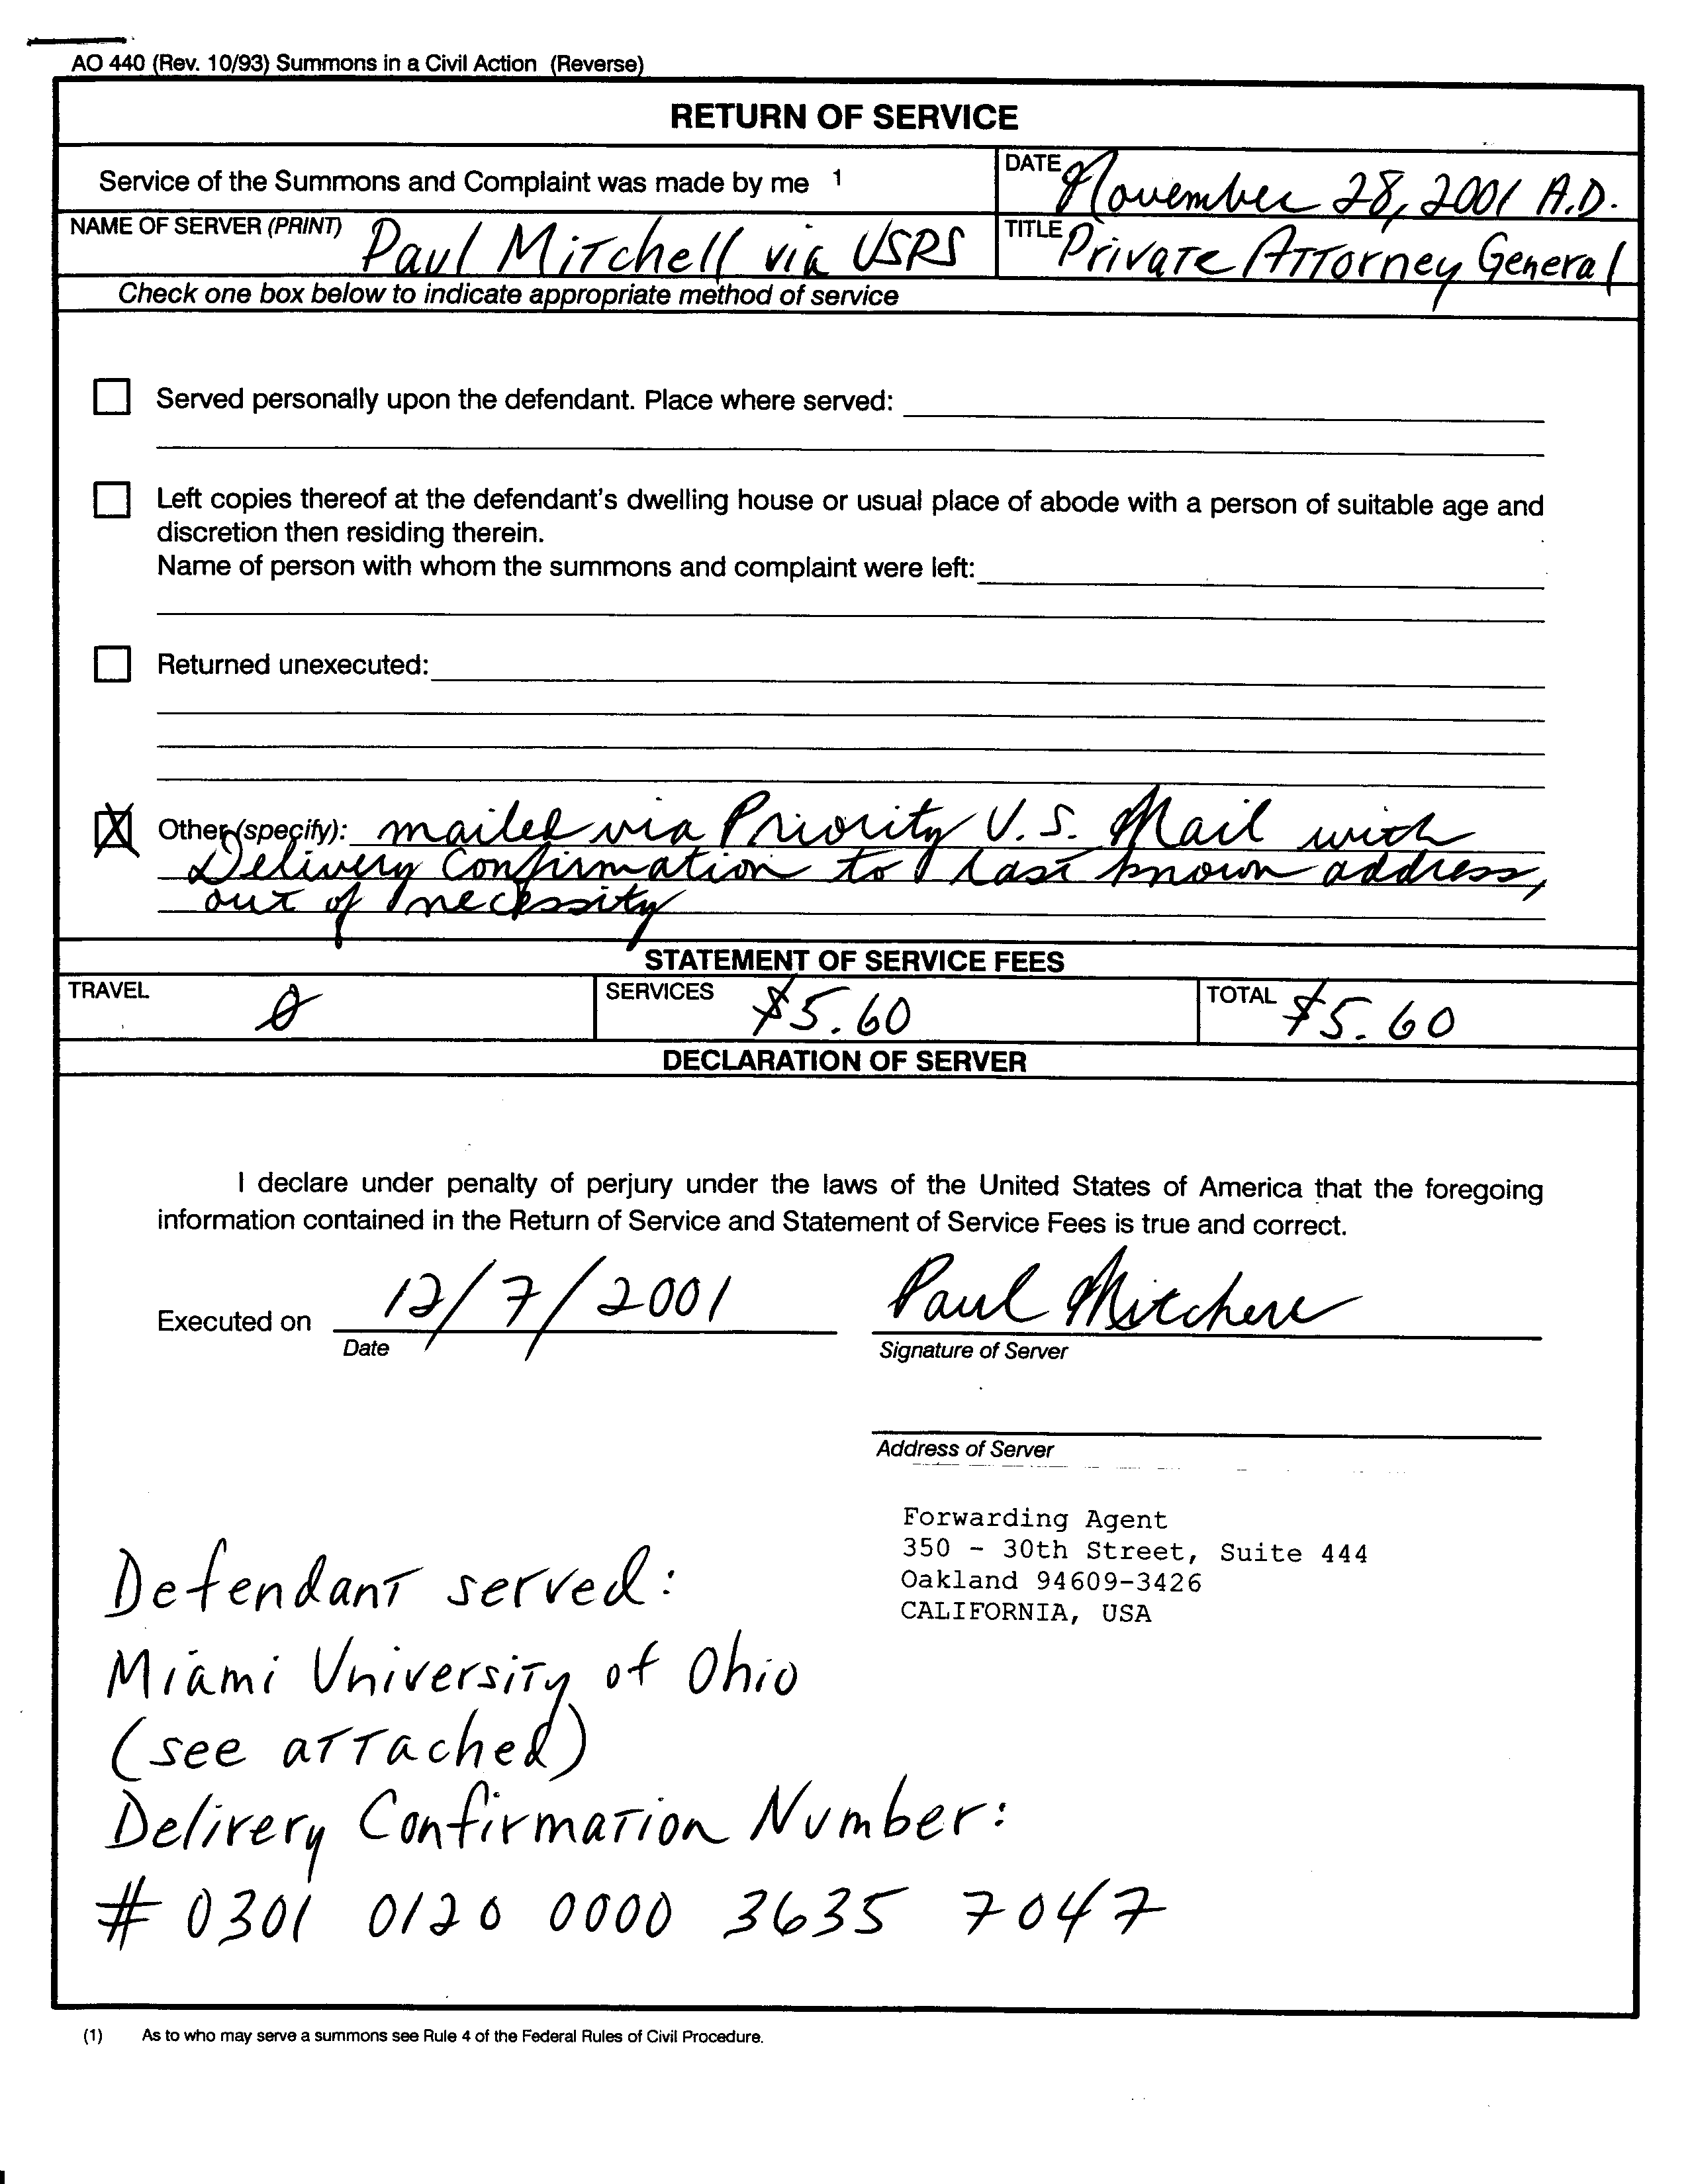 AO 440 (Rev. 10/93) Summons in a Civil Action (Reverse)
RETURN OF SERVICE
Service of the Summons and Complaint was made by me 1
DATE November 28, 2001 A.D.
NAME OF SERVER (PRINT) Paul Mitchell via USPS
TITLE Private Attorney General
Check one box below to indicate appropriate method of service
Served personally upon the defendant. Place where served:
Left copies thereof at the defendant's dwelling house or usual place of abode with a person of suitable age and
discretion then residing therein.
Name of person with whom the summons and complaint were left:
Returned unexecuted:
Other (specify): mailed via Priority U.S. Mail with
Delivery Confirmation to last known address,
out of necessity
STATEMENT OF SERVICE FEES
TRAVEL 0
SERVICES $5.60
TOTAL $5.60
DECLARATION OF SERVER
I declare under penalty of perjury under the laws of the United States of America that the foregoing
information contained in the Return of Service and Statement of Service Fees is true and correct.
Executed on 12/7/2001
Date
Paul Mitchell
Signature of Server
Address of Server
Forwarding Agent
350 - 30th Street, Suite 444
Oakland 94609-3426
CALIFORNIA, USA
Defendant served:
Miami University of Ohio
(see attached)
Delivery Confirmation Number:
# 0301 0120 0000 3635 7047
(1) As to who may serve a summons see Rule 4 of the Federal Rules of Civil Procedure.